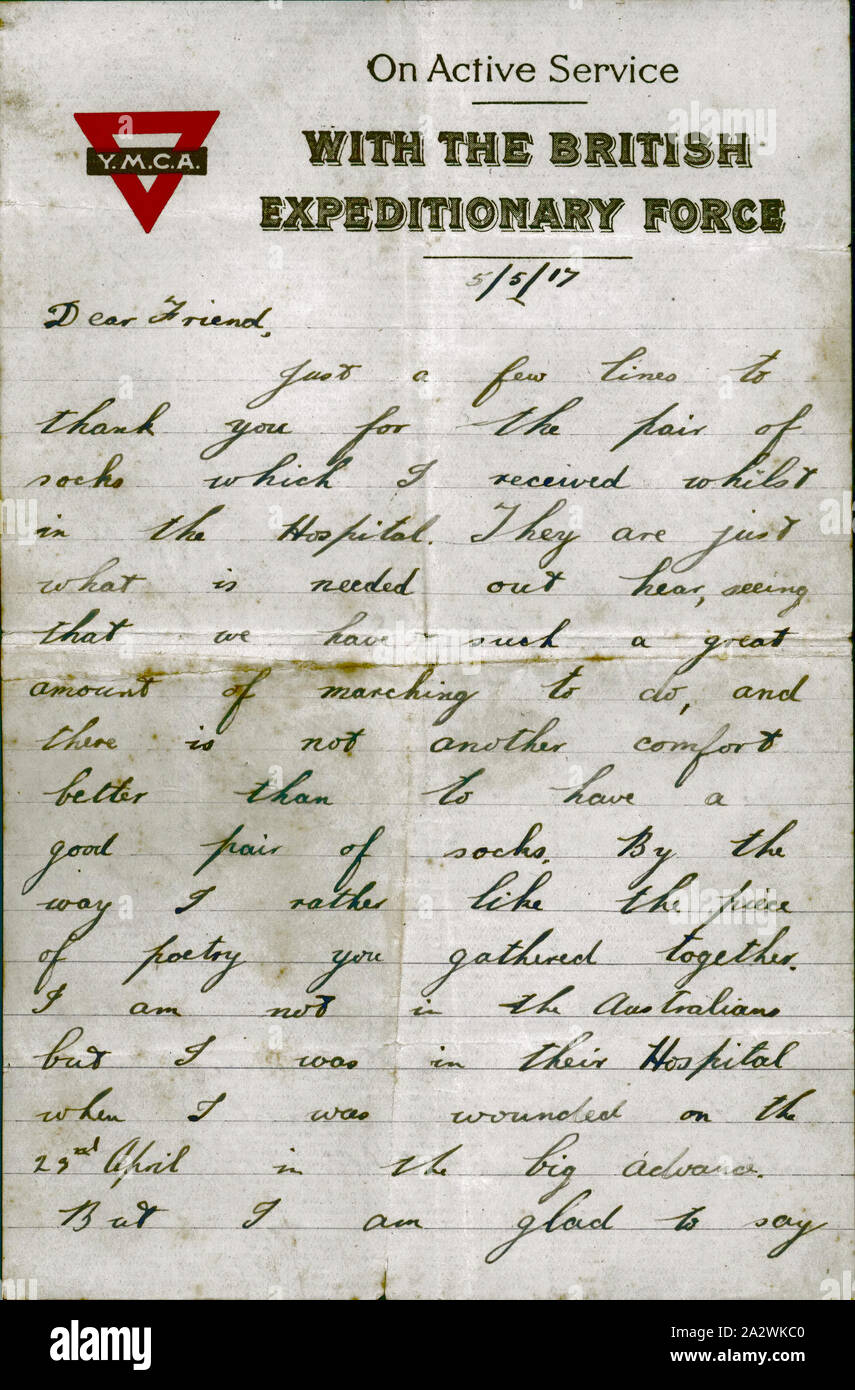 On Active Service
Y.M.C.A.
WITH THE BRITISH
EXPEDITIONARY FORCE
5/5/17
Dear Friend,
Just a few lines to
thank you for the pair of
socks which I received whilst
in the Hospital. They are just
what is needed out hear, seeing
that we have such a great
amount of marching to do, and
there is not another comfort
better than to have a
good pair of socks. By the
way I rather like the piece
of poetry you gathered together.
I am not in the Australians
but I was in their Hospital
when I was wounded on the
23rd April in the big advance.
But I am glad to say
alamy
Image ID: 2A2WKC0
www.alamy.com